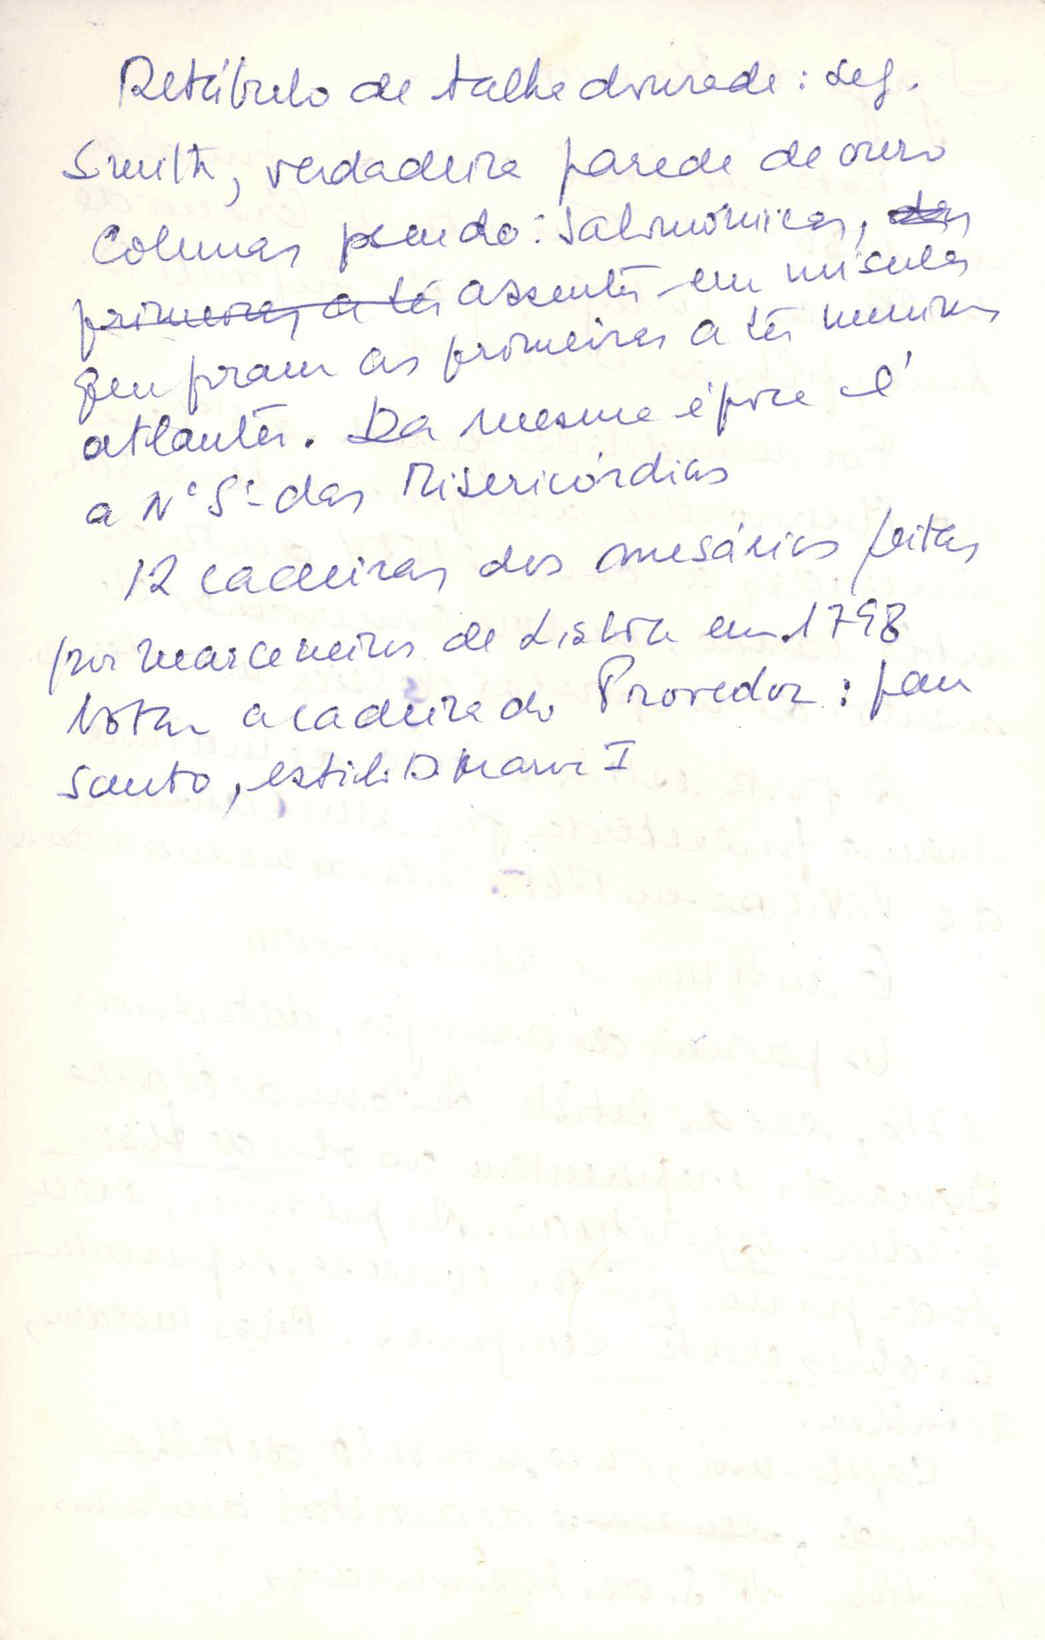 Retábulo de talha dourada: seg.
Smith, verdadeira parede de ouro
Colunas pseudo-salomónicas, das
primeiras a ter assentes em mísulas
que foram as primeiras a ter meninos
atlantes. Da mesma época é
a Nª Sª das Misericórdias
12 cadeiras dos mesários feitas
por marceneiros de Lisboa em 1798
Notar a cadeira do Provedor: pau
santo, estilo D. Maria I